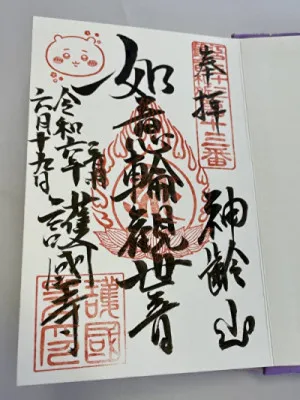 奉拝
十三番
神齢山
如意輪觀世音
護國寺
令和六年
六月十九日
護國